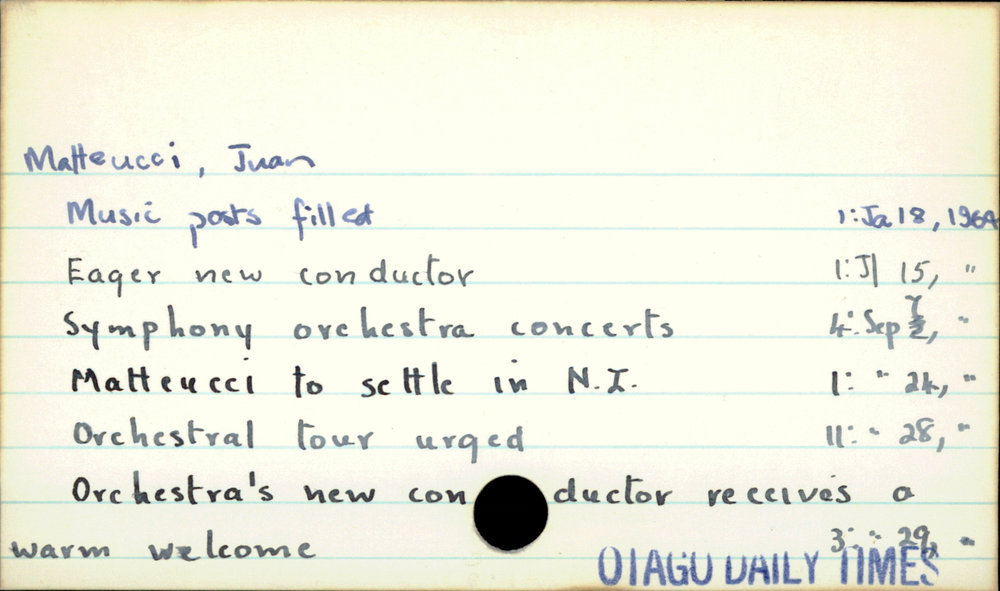 Matteucci, Juan
Music posts filled 1:Ja 18, 1964
Eager new conductor 1:Jl 15, "
Symphony orchestra concerts 4:Sep , "
Matteucci to settle in N.Z. 1: " 24, "
Orchestral tour urged 11: " 28, "
Orchestra's new conductor receives a
warm welcome 3: " 29, "
OTAGO DAILY TIMES